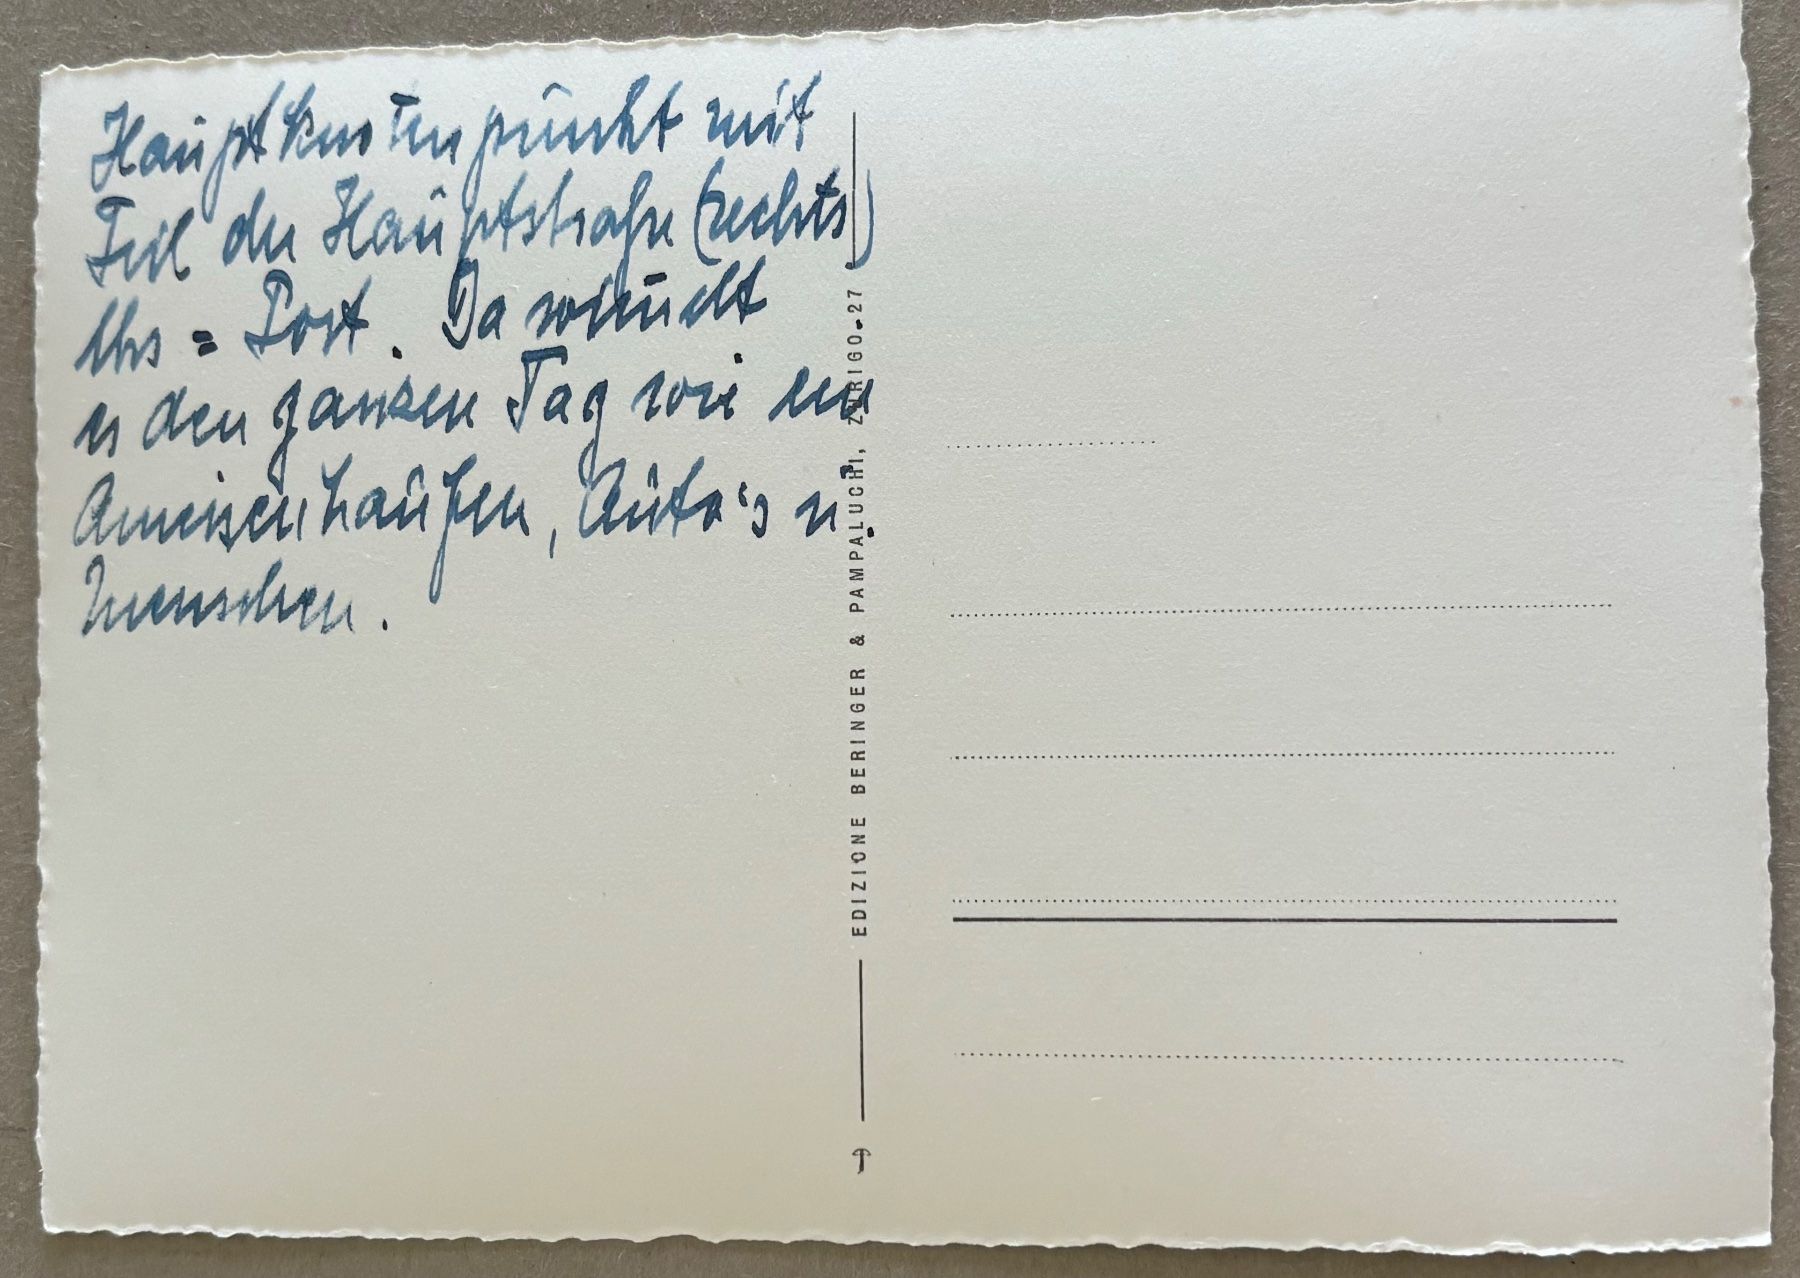 Hauptknotenpunkt mit
Teil der Hauptstraße (rechts)
lks = Post. Da wimmelt
es den ganzen Tag wie ein
Ameisenhaufen, Auto's u.
Menschen.
EDIZIONE BERINGER & PAMPALUCHI, ZURIGO.27